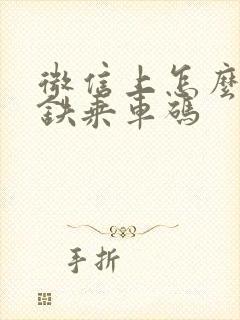 微信上怎麼
鉄乗車碼
手折